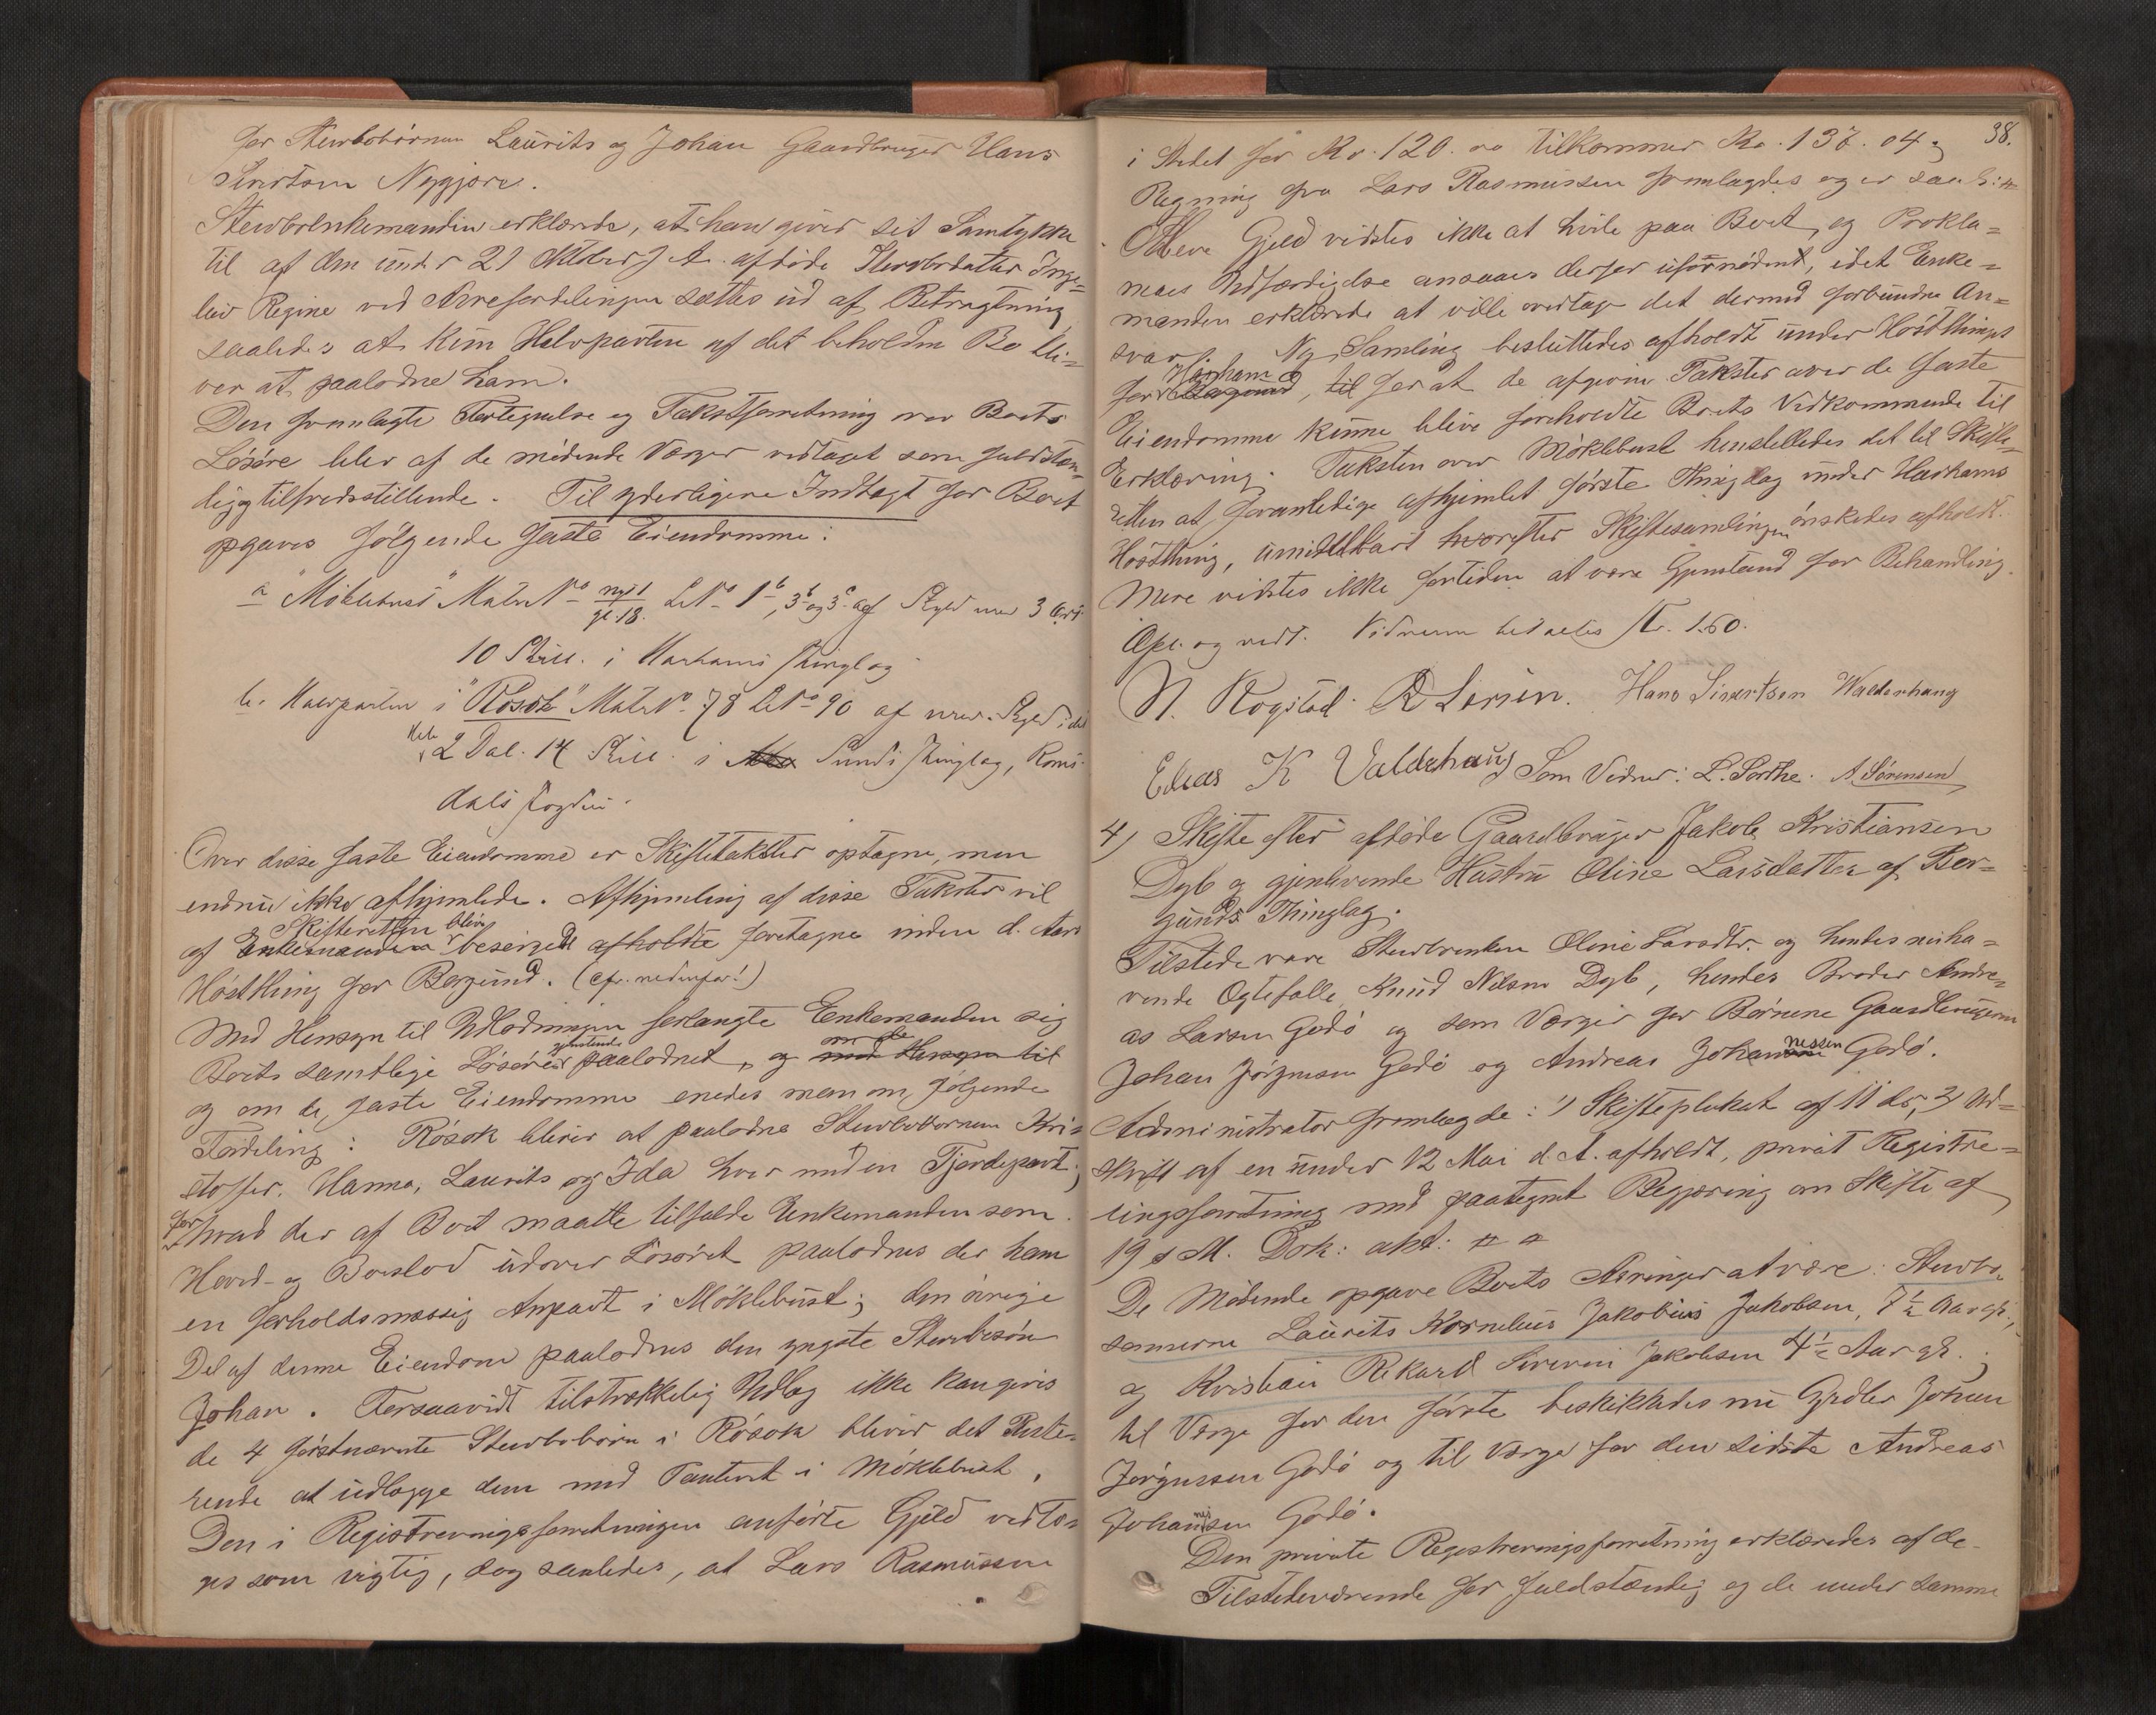 for Stervbobørnene Laurits og Johan Gaardbruger Hans
Sivertsen Nygjøre.
Stervboenkemanden erklærede, at han giver sit Samtykke
til at den under 21 Oktober f. A. afdøde Stervbodatter Inge-
lev Regine ved Arvefordelingen sættes ud af Betragtning,
saaledes at kun Halvparten af det beholdne Bo bli-
ver at paalodne ham.
Den fremlagte Fortegnelse og Takstforretning over Boets
Løsøre blev af de mødende Værger vedtaget som fuldstæn-
dig og tilfredsstillende. Til yderligere Indtægt for Boet
opgaves følgende faste Eiendomme:
a "Möklebust" Matr No ny 1 / gl. 18. L No 1b, 3b og 3c af Skyld 3 Ort
10 Skill. i Harhams Thinglag
b. Halvparten i "Rösok" Matr No 78 L No 90 af Skyld i det
Hele 2 Dal. 14 Skill. i Sunds Thinglag, Roms-
dals Fogderi.
Over disse faste Eiendomme er Skiftetakster optagne, men
endnu ikke afhjemlede. Afhjemling af disse Takster vil
af Enkemanden Skifteretten blive besørget afholdte foretagne inden d. Aars
Høstthing for Borgund. (cfr. nedenfor!)
Med Hensyn til Udlodningen forlangte Enkemanden sig
Boets samtlige Løsøregjenstande paalodnet, og med Hensyn til
og om de faste Eiendomme enedes man om følgende
Fordeling: Rösok bliver at paalodne Stervbobørnene Kri-
stoffer, Hanna, Laurits og Ida hver med en Fjerdepart;
for hvad der af Boet maatte tilfalde Enkemanden som
Hoved- og Boeslod udover Løsøret paalodnes der ham
en forholdsmæssig Anpart i Möklebust; den øvrige
Del af denne Eiendom paalodnes den yngste Stervbosøn
Johan. Forsaavidt tilstrækkelig Udlæg ikke kan gives
de 4 førstnævnte Stervbobørn i Rösok bliver det Reste-
rende at udlægge dem med Panteret i Möklebust.
Den i Registreringsforretningen anførte Gjeld vedto-
ges som rigtig, dog saaledes, at Lars Rasmussen
38.
i Stedet for Kr. 120.00 tilkommer Kr. 137.04.
Regning fra Lars Rasmussen fremlagdes og er
Mere Gjeld vidstes ikke at hvile paa Boet, og Prokla-
maes Udfærdigelse ansaaes derfor ufornødent, idet Enke-
manden erklærede at ville overtage det dermed forbundne An-
svar. Ny Samling besluttedes afholdt under Høstthinget
for Borgund Harham, til for at de afgivne Takster over de faste
Eiendomme kunne blive foreholdte Boets Vedkommende til
Erklæring. Taksten over Möklebust henstilledes det til Skifte-
retten at foranledige afhjemlet første Thingdag under Harhams
Høstthing, umiddelbart hvorefter Skiftesamlingen ønskedes afholdt.
Mere vidstes ikke fortiden at være Gjenstand for Behandling.
Opl. og vedt. Vidnerne betaltes Kr. 1.60.
N. Rogstad. R Larsen. Hans Sivertsen Walderhaug
Elias K Valdehaug Som Vidner: L. Sorthe. A. Sørensen
4) Skifte efter afdøde Gaardbruger Jakob Kristiansen
Dyb og gjenlevende Hustru Oline Larsdatter af Bor-
gunds Thinglag.
Tilstede vare Stervboenken Oline Larsdtr. og hendes nuha-
vende Ægtefælle Knud Nilsen Dyb, hendes Broder Andre-
as Larsen Godø og som Værger for Børnene Gaardbrugerne
Johan Jörgensen Godø og Andreas Johannessen Godø.
Administrator fremlagde: 1) Skifteplakat af 11 ds, 2) Ud-
skrift af en under 12 Mai d. A. afholdt, privat Registre-
ringsforretning med paategnet Begjæring om Skifte af
19 s. M. Dok: akt:
De Mødende opgave Boets Arvinger at være: Stervbo-
sønnerne Laurits Kornelius Jakobius Jakobsen, 7½ Aar gl.,
og Kristian Rikard Severin Jakobsen 4½ Aar gl.;
til Værge for den første beskikkedes nu Grdbr Johan
Jørgensen Godø og til Værge for den sidste Andreas
Johannesen Godø.
Den private Registreringsforretning erklæredes af de
Tilstedeværende for fuldstændig og de under samme